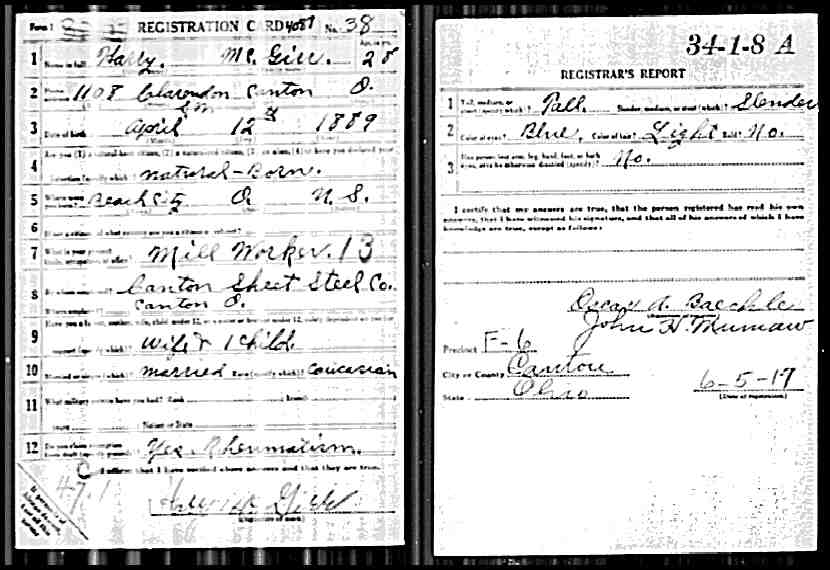 Form 1 REGISTRATION CARD No. 38
1 Name in full Harry. Mc. Gill. Age, in yrs. 28
2 1108 Clarendon Canton O.
S.W.
3 Date of birth April 12th 1889
4 Are you (1) a natural-born citizen, (2) a naturalized citizen, (3) an alien, (4) or have you declared your
intention (specify which)? Natural-Born.
5 Where were you born? Beach City O. U. S.
6 If not a citizen, of what country are you a citizen or subject?
7 What is your present trade, occupation, or office? Mill Worker. 13
8 By whom employed? Canton Sheet Steel Co.
Where employed? Canton O.
9 Have you a father, mother, wife, child under 12, or a sister or brother under 12, solely dependent on you for
support (specify which)? Wife & 1 Child.
10 Married or single (which)? Married Race (specify which)? Caucasian
11 What military service have you had? Rank Branch
Years Nation or State
12 Do you claim exemption from draft (specify grounds)? Yes. Rheumatism.
I affirm that I have verified above answers and that they are true.
Harry Mc Gill
(Signature or mark)
If person is of African descent, tear off this corner
34-1-8 A
REGISTRAR'S REPORT
1 Tall, medium, or short (specify which)? Tall. Slender, medium, or stout (which)? Slender
2 Color of eyes? Blue. Color of hair? Light Bald? No.
3 Has person lost arm, leg, hand, foot, or both eyes, or is he otherwise disabled (specify)? No.
I certify that my answers are true, that the person registered has read his own
answers, that I have witnessed his signature, and that all of his answers of which I have
knowledge are true, except as follows:
Oscar A. Baechle
John H. Mumaw
Precinct F-6
City or County Canton
State Ohio
6-5-17
(Date of registration)